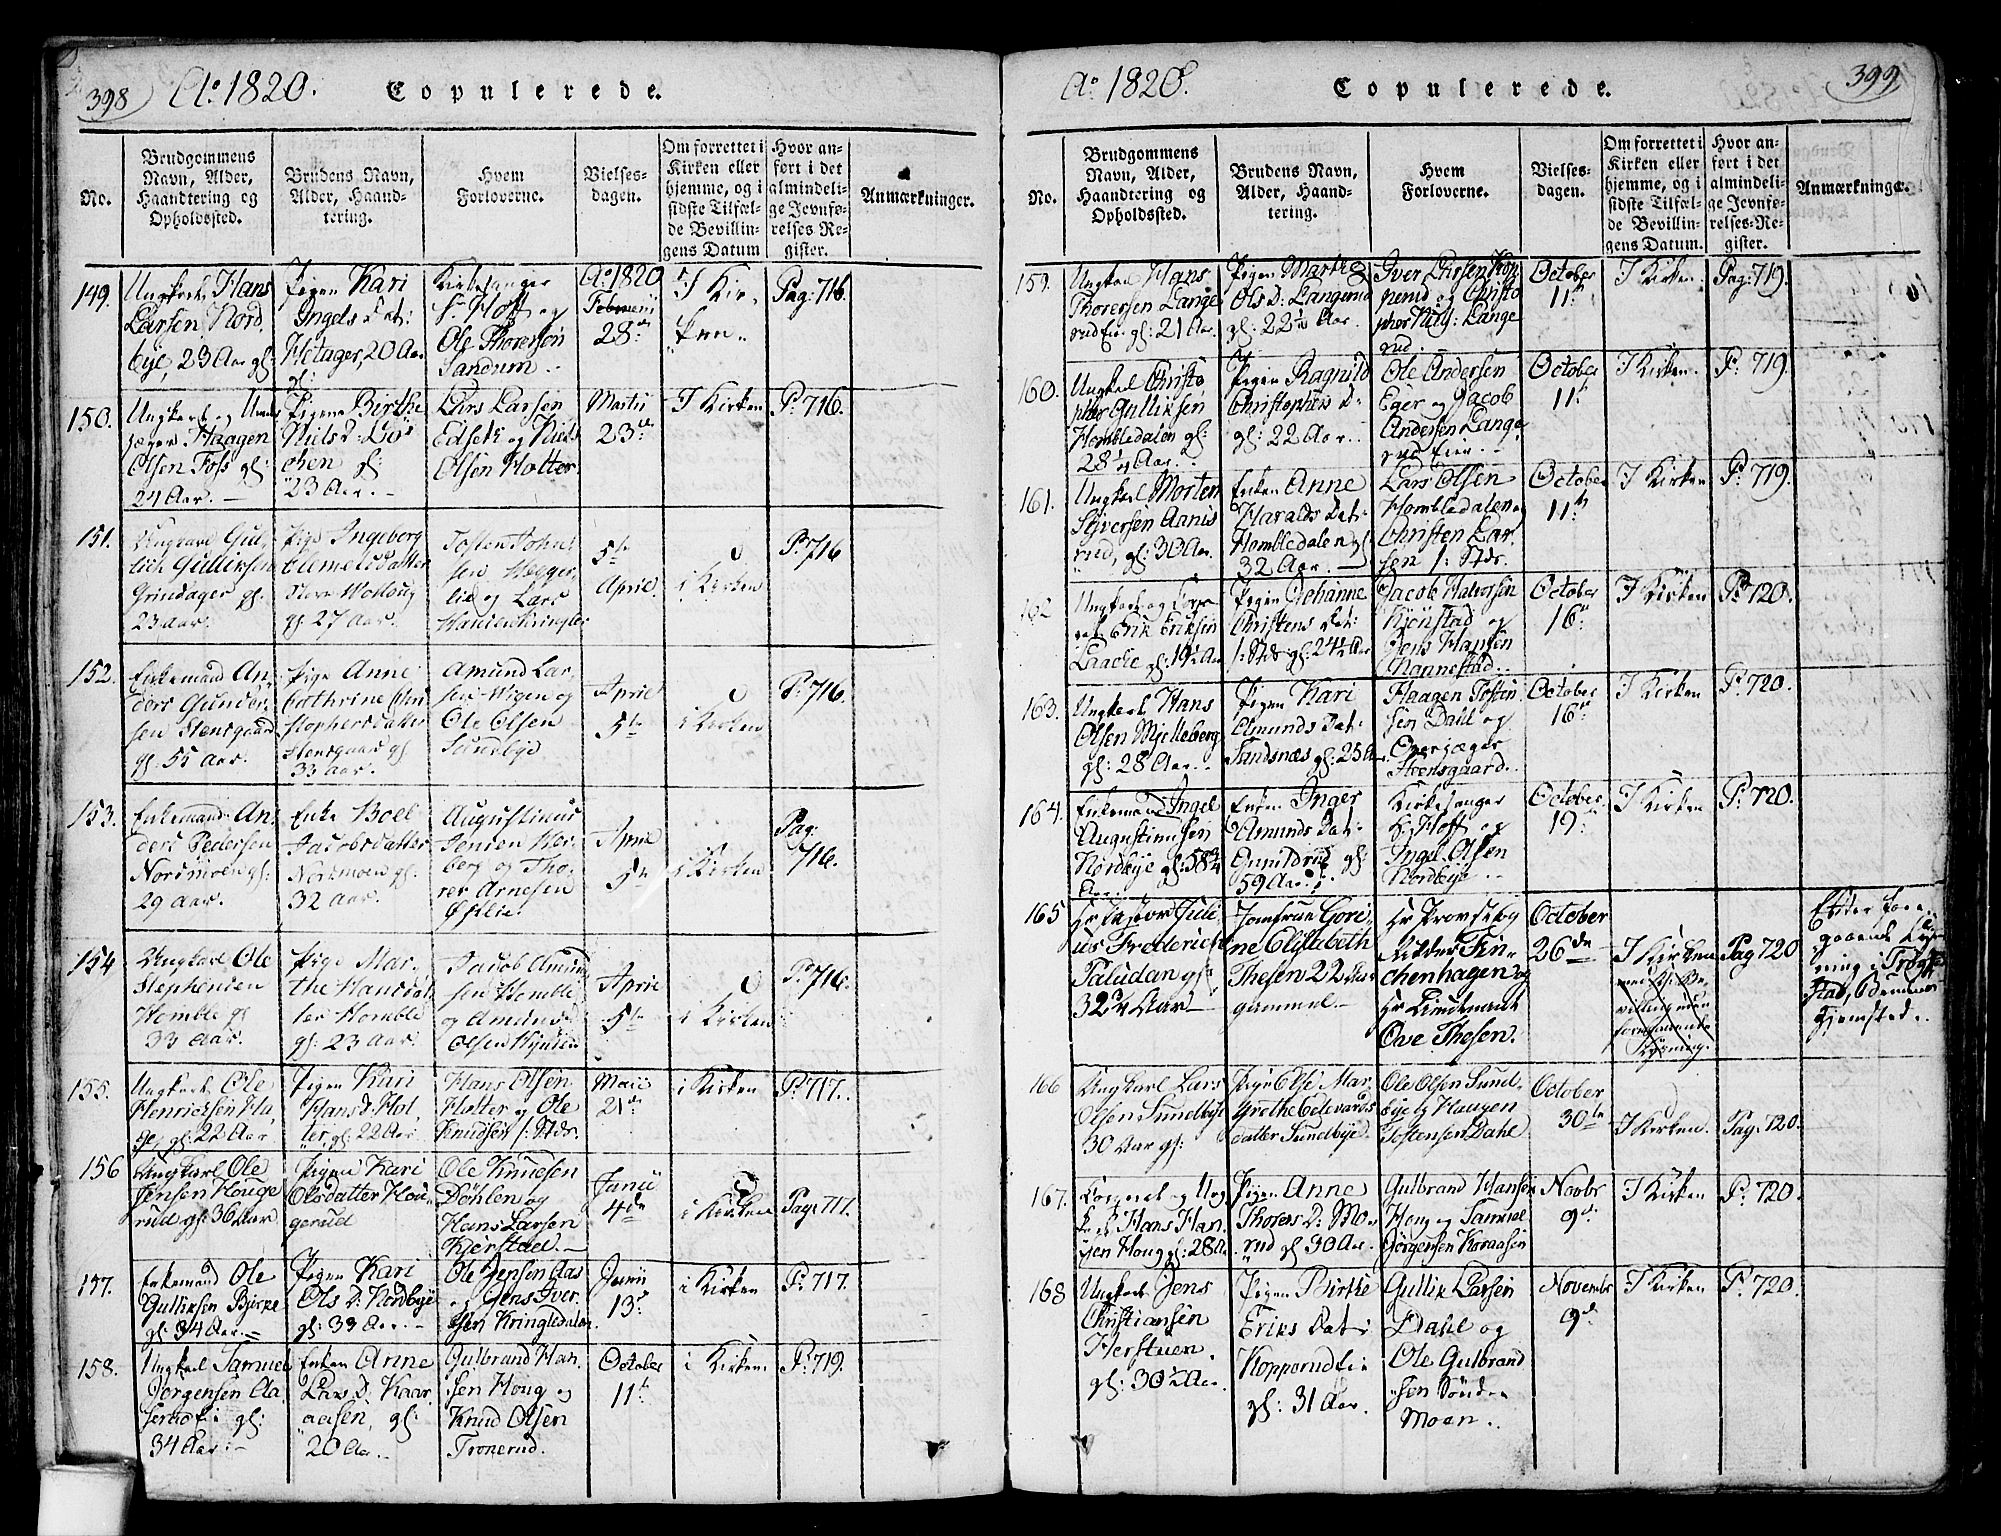 398
Ao 1820.
Copulerede.
No.
Brudgommens
Navn, Alder,
Haandtering og
Opholdssted.
Brudens Navn,
Alder, Haand-
tering.
Hvem
Forloverne.
Vielses-
dagen.
Om forrettet i
Kirken eller
hjemme, og i
sidste Tilfæl-
de Bevillin-
gens Datum
Hvor an-
ført i det
almindeli-
ge Jevnfø-
relses Re-
gister.
Anmærkninger.
149.
Ungkarl Hans
Larsen Nord,
bye, 23 Aar gl:
Pigen Kari
Ingels Dat:
Hotager, 20 Aar
gl:
Kirkesanger
Hr Hoff og
Ole Thoresøn
Sandum.
Ao 1820
Februarii
28de
I Kir-
ken.
Pag: 716.
150.
Ungkarl og
jæger Haagen
Olsen Foss gl:
24 Aar.
Pigen Birthe
Niels D:
gl:
23 Aar.
Lars Larsen
Edseth og Niels
Olsøn Holter
Martii
23de
I Kirken
P: 716.
151.
Ungkarl Gul-
lich Gulliksen
Grindager gl:
23 aar.
Pige Ingeborg
Clemetsdatter
gl 27 aar.
Tosten John-
sen Hegger-
lie og Lars
Hansen Kringler
5te
April
i Kirken
P: 716
152.
Enkemand An-
ders Gunder-
sen Stensgaard
gl. 55 aar.
Pige Anne
Cathrine Chri-
stophersdatter
Stensgaard gl
33 aar.
Amund Lar-
sen Wigen og
Ole Olsen
Sundbye
April
5te
i Kirken
P: 716.
153.
Enkemand An-
ders Pedersen
Nordmoen gl:
29 aar.
Enke Boel
Jacobsdatter
Nordmoen gl:
32 aar.
Augustinus
Jensen Ner-
berg og Tho-
rer Arnesen
Østlie.
April
5te
i Kirken
Pag:
716.
154
Ungkarl Ole
Stephensen
Homble gl
33 aar.
Pige Mar-
the Hansdat-
ter Homble
gl: 23 Aar.
Jacob Amund-
sen Homble
og Amund
Olsen
April
5te
i Kirken
P: 716.
155.
Ungkarl Ole
Henricksen Ha-
ge, gl: 22 Aar
Pigen Kari
Hans D: Hol
ter, gl: 22 Aar
Hans Olsen
Holter og Ole
Knudsen /: Stdr
Maii
21de
i Kirken
P: 717.
156
Ungkarl Ole
Jensen Houge
rud gl: 36 Aar
Pigen Kari
Olsdatter Hou-
gerud
Ole Knudsen
Døhlen og
Hans Larsen
Kjerstad.
Junii
4de
i Kirken
Pag: 717.
157.
Enkemand Ole
Gulliksen Bjerke
gl: 34 Aar.
Pigen Kari
Ols D: Nordbye
gl: 33 Aar.
Ole Jensen Aas
og Jens Iver
sen Kringledalen
Junii
13de
i Kirken
P: 717.
158.
Ungkarl Samuel
Jørgensen Aa
serud Ei gl:
34 Aar.
Enken Anne
Lars D: Kaar
aasen, gl:
20 Aar.
Gulbrand Han
sen Houg og
Knud Olsen
Tronerud.
October
11te
i Kirken.
P: 719.
Ao 1820.
Copulerede.
399
No.
Brudgommens
Navn, Alder,
Haandtering og
Opholdssted.
Brudens Navn,
Alder, Haand-
tering.
Hvem
Forloverne.
Vielses-
dagen.
Om forrettet i
Kirken eller
hjemme, og i
sidste Tilfæl-
de Bevillin-
gens Datum.
Hvor an-
ført i det
almindeli-
ge Jevnfø-
relses-Re-
gister.
Anmærkninger.
159.
Ungkarl Hans
Thoresen Lange
rud Eier gl: 21 Aar.
Pigen Marthe
Ols D: Langerud
gl: 22½ Aar.
Iver Larsen Kop
perud og Christo
pher Lange
rud.
October
11te
I Kirken
Pag: 719.
160.
Ungkarl Christo
pher Gulliksen
Hombledalen gl:
28½ Aar.
Pigen Ragnild
Christophers D:
gl: 22 Aar.
Ole Andersen
Eger og Jacob
Andersen Lange
rud Eier.
October
11te
I Kirken.
P: 719
161.
Ungkarl Morten
Syversen Aanis
rud, gl: 30 Aar.
Enken Anne
Haralds Dat:
Hombledalen gl
32 Aar.
Lars Olsen
Hombledalen og
Christen Lar
sen /: Stdr.
October
11te
I Kirken
P: 719.
162
Ungkarl og Corpo
ral Erik Eriksen
Laache gl: 19½ Aar
Pigen Johanne
Christens Dat:
/: Stdr gl: 24½ Aar
Jacob Halvorsen
Kjønstad og
Jens Hansen
Nannestad.
October
16de
I Kirken
P: 720.
163.
Ungkarl Hans
Olsen Mjelleberg
gl: 28 Aar.
Pigen Kari
Amunds Dat:
Sandsnæs gl: 25 A
Haagen Tosten
sen Dahl og
Overjæger
Steensgaard.
October
16de
I Kirken
P: 720.
164.
Enkemand Ingel
Augustinusen
Nordbye gl: 58¾
Aar.
Enken Inger
Amunds Dat:
Gunildrud gl:
59 Aar.
Kirkesanger
Hr Hoff og
Ingel Olsen
Nordbye
October
19de
I Kirken
P: 720.
165
Hr Pastor Juli
us Frederich
Paludan gl:
32¾ Aar
Jomfrue Gori-
ne Elisabeth
Thesen 22 Aar
gammel.
Hr Provst og
Ridder Fin-
chenhagen og
Hr Lieutenant
Ove Thesen.
October
26de
I Kirken
Pag 720
Efter fore-
gaaende Lys-
ning i Trøg-
stad, Brudens
Hjemsted.
166
Ungkarl Lars
Olsen Sundbye
30 Aar gl:
Pige Else Mar-
grethe Edevards-
datter Sundbye.
Ole Olsen Sund-
bye og Haagen
Tostensen Dahl
October
30te
I Kirken.
Pag. 720.
167.
Corporal og Ung
karl Hans Han
sen Houg gl: 28 Aar
Pigen Anne
Thorers D: Mo-
rud gl 30 Aar.
Gulbrand Hansen
Houg og Samuel
Jørgensen Koraasen
Novbr
9de
I Kirken
P: 720.
168
Ungkarl Jens
Christiansen
Herstuen.
gl: 30½ Aar.
Pigen Birthe
Eriks Dat:
Kopperud Ei:
gl: 31 Aar.
Gullik Larsen
Dahl og
Ole Gulbrand
sen Søndre
Moen.
Novembr
9de
I Kirken
P: 720.